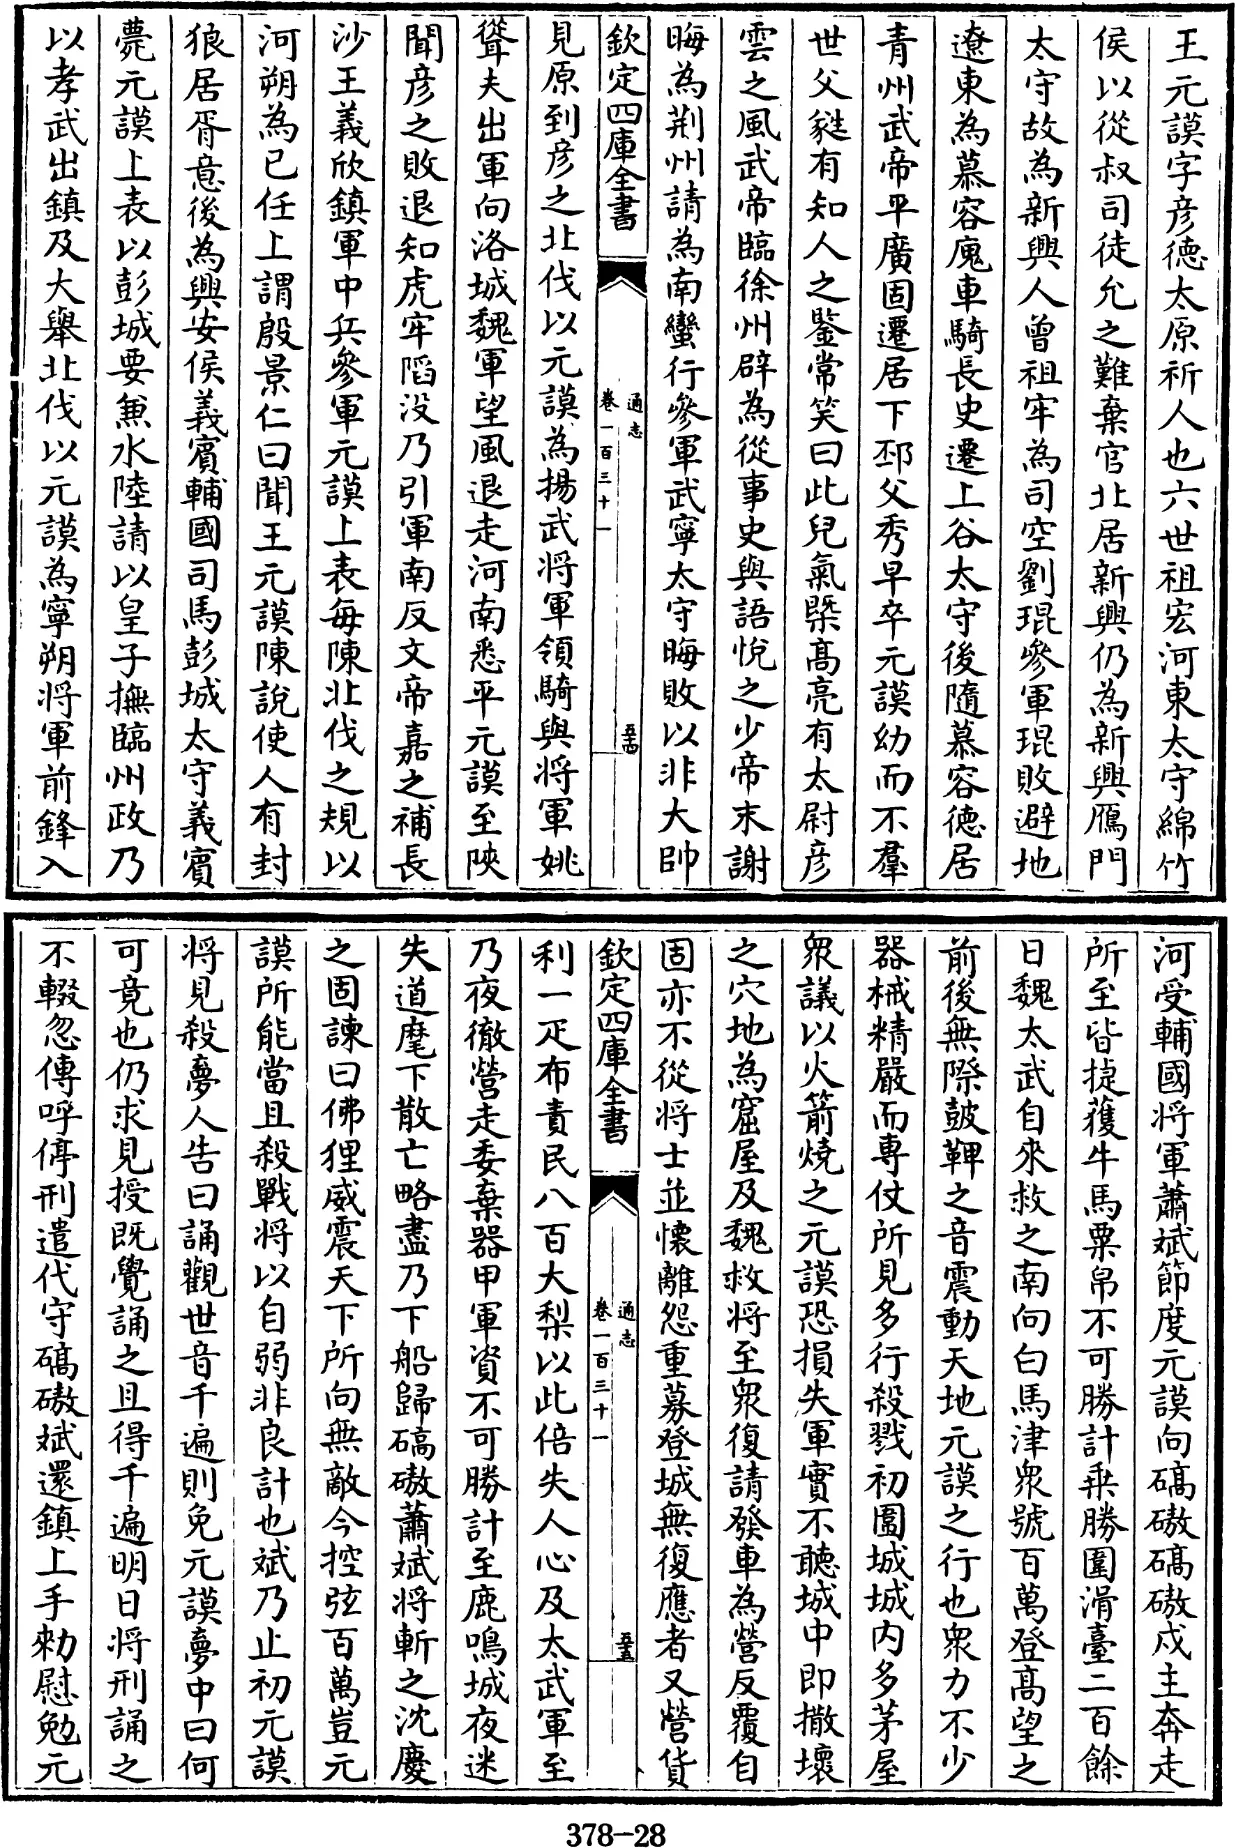 王元謨字彦徳太原祈人也六世祖宏河東太守綿竹
侯以從叔司徒允之難棄官北居新興仍為新興鴈門
太守故為新興人曾祖牢為司空劉琨參軍琨敗避地
遼東為慕容廆車騎長史遷上谷太守後隨慕容德居
青州武帝平廣固遷居下邳父秀早卒元謨幼而不羣
世父蕤有知人之鑒常笑曰此兒氣槩髙亮有太尉彦
雲之風武帝臨徐州辟為從事史與語悅之少帝末謝
晦為荆州請為南蠻行參軍武寧太守晦敗以非大帥
欽定四庫全書
通志
卷一百三十一
五十四
見原到彦之北伐以元謨為揚武将軍領騎與将軍姚
聳夫出軍向洛城魏軍望風退走河南悉平元謨至陜
聞彦之敗退知虎牢䧟没乃引軍南反文帝嘉之補長
沙王義欣鎮軍中兵參軍元謨上表每陳北伐之規以
河朔為已任上謂殷景仁曰聞王元謨陳說使人有封
狼居胥意後為興安侯義賓輔國司馬彭城太守義賓
薨元謨上表以彭城要兼水陸請以皇子撫臨州政乃
以孝武出鎮及大舉北伐以元謨為寧朔将軍前鋒入
河受輔國将軍蕭斌節度元謨向碻磝碻磝戍主奔走
所至皆㨗獲牛馬粟帛不可勝計乗勝圍滑臺二百餘
日魏太武自來救之南向白馬津衆號百萬登髙望之
前後無際鼓鞞之音震動天地元謨之行也衆力不少
器械精嚴而専仗所見多行殺戮初圍城城内多茅屋
衆議以火箭燒之元謨恐損失軍實不聽城中即撤壊
之穴地為窟屋及魏救将至衆復請發車為營反覆自
固亦不從将士並懷離怨重募登城無復應者又營貨
欽定四庫全書
通志
卷一百三十一
五十五
利一疋布責民八百大梨以此倍失人心及太武軍至
乃夜徹營走委棄器甲軍資不可勝計至鹿鳴城夜迷
失道麾下散亡略盡乃下船歸碻磝蕭斌将斬之沈慶
之固諫曰佛狸威震天下所向無敵今控弦百萬豈元
謨所能當且殺戰将以自弱非良計也斌乃止初元謨
将見殺夢人告曰誦觀世音千遍則免元謨夢中曰何
可竟也仍求見授既覺誦之且得千遍明日将刑誦之
不輟忽傳呼停刑遣代守碻磝斌還鎮上手勑慰勉元
378-28